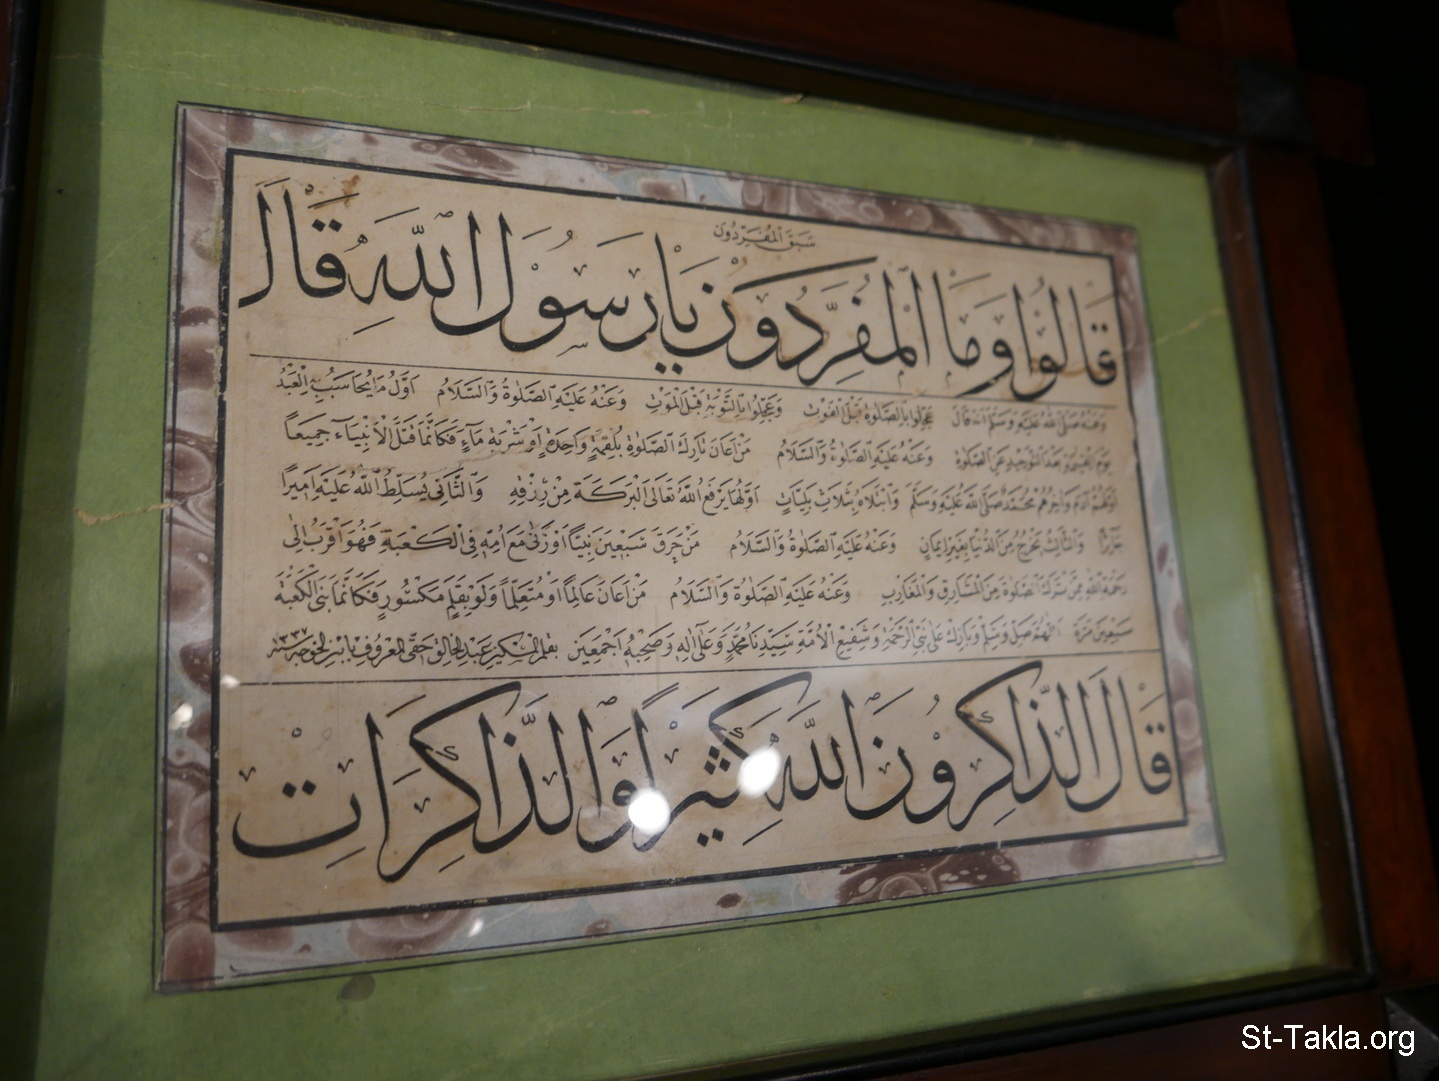 سَبَقَ الْمُفَرِّدُونَ
قَالُوا وَمَا الْمُفَرِّدُونَ يَا رَسُولَ اللّٰهِ قَالَ
وَعَنْهُ صَلَّى اللّٰهُ عَلَيْهِ وَسَلَّمَ اَنَّهُ قَالَ عَجِّلُوا بِالصَّلٰوةِ قَبْلَ الْفَوْتِ وَعَجِّلُوا بِالتَّوْبَةِ قَبْلَ الْمَوْتِ وَعَنْهُ عَلَيْهِ الصَّلٰوةُ وَالسَّلَامُ اَوَّلُ مَا يُحَاسَبُ بِهِ الْعَبْدُ
يَوْمَ الْقِيٰمَةِ بَعْدَ التَّوْحِيدِ عَنِ الصَّلٰوةِ وَعَنْهُ عَلَيْهِ الصَّلٰوةُ وَالسَّلَامُ مَنْ اَعَانَ تَارِكَ الصَّلٰوةِ بِلُقْمَةٍ وَاحِدَةٍ اَوْ شَرْبَةِ مَاءٍ فَكَاَنَّمَا قَتَلَ الْاَنْبِيَاءَ جَمِيعًا
اَوَّلُهُمْ اٰدَمُ وَاٰخِرُهُمْ مُحَمَّدٌ صَلَّى اللّٰهُ عَلَيْهِ وَسَلَّمَ وَابْتَلَاهُ بِثَلَاثِ بَلِيَّاتٍ اَوَّلُهَا يَرْفَعُ اللّٰهُ تَعَالَى الْبَرَكَةَ مِنْ رِزْقِهِ وَالثَّانِى يُسَلِّطُ اللّٰهُ عَلَيْهِ اَمِيرًا
جَائِرًا وَالثَّالِثُ يَخْرُجُ مِنَ الدُّنْيَا بِغَيْرِ اِيمَانٍ وَعَنْهُ عَلَيْهِ الصَّلٰوةُ وَالسَّلَامُ مَنْ حَرَقَ سَبْعِينَ نَبِيًّا اَوْ زَنٰى مَعَ اُمِّهِ فِى الْكَعْبَةِ فَهُوَ اَقْرَبُ اِلٰى
رَحْمَةِ اللّٰهِ مِمَّنْ تَرَكَ الصَّلٰوةَ مِنَ الْمَشَارِقِ وَالْمَغَارِبِ وَعَنْهُ عَلَيْهِ الصَّلٰوةُ وَالسَّلَامُ مَنْ اَعَانَ عَالِمًا اَوْ مُتَعَلِّمًا وَلَوْ بِقَلَمٍ مَكْسُورٍ فَكَاَنَّمَا بَنَى الْكَعْبَةَ
سَبْعِينَ مَرَّةً اَللّٰهُمَّ صَلِّ وَسَلِّمْ وَبَارِكْ عَلٰى نَبِىِّ الرَّحْمَةِ وَشَفِيعِ الْاُمَّةِ سَيِّدِنَا مُحَمَّدٍ وَعَلٰى اٰلِهِ وَصَحْبِهِ اَجْمَعِينَ بقلم عبد الخالق حقى المعروف بابن الخوجه ١٣٣٧
قَالَ الذَّاكِرُونَ اللّٰهَ كَثِيرًا وَالذَّاكِرَاتِ
St-Takla.org